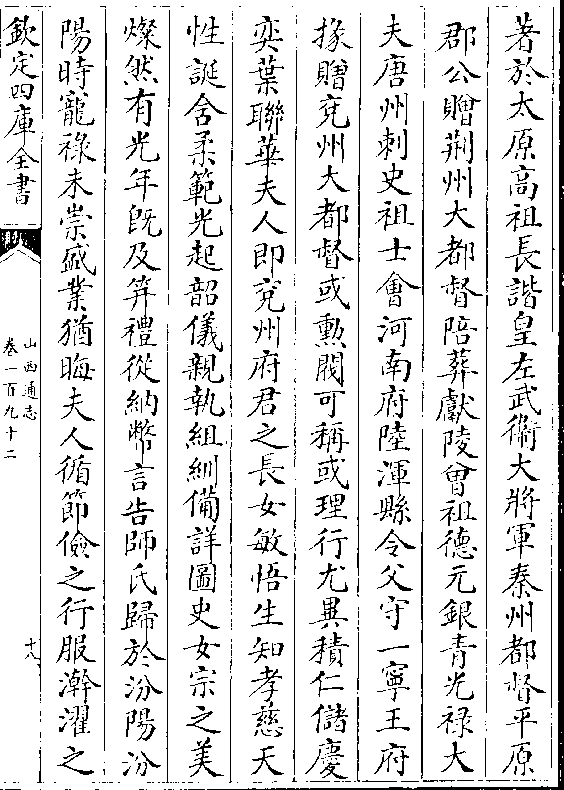 著於太原高祖長諧皇左武衛大將軍秦州都督平原
郡公贈荆州大都督陪葬獻陵曾祖德元銀青光禄大
夫唐州刺史祖士㑹河南府陸渾縣令父守一寧王府
掾贈兖州大都督或勲閥可稱或理行尤異積仁儲慶
奕葉聯華夫人即兖州府君之長女敏悟生知孝慈天
性誕含柔範光起韶儀親執組紃備詳圖史女宗之美
燦然有光年既及笄禮從納幣言告師氏歸於汾陽汾
陽時寵禄未崇盛業猶晦夫人循節儉之行服澣濯之
欽定四庫全書
山西通志
卷一百九十二
十八